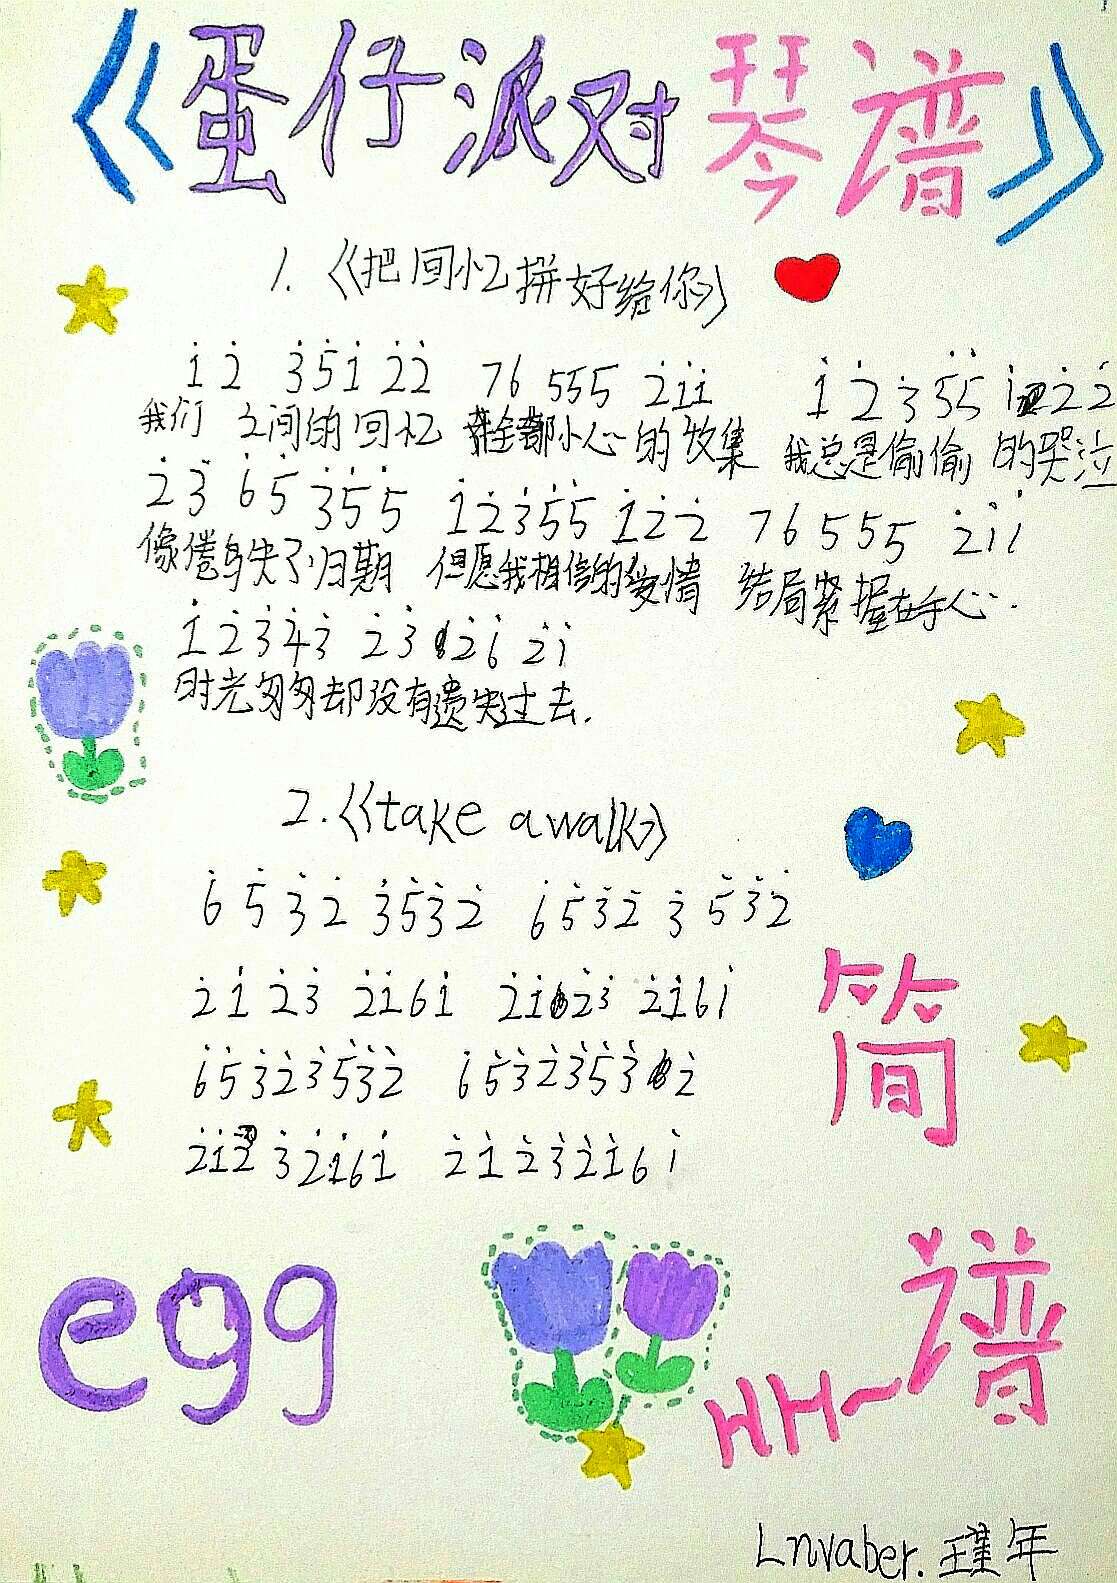 《蛋仔派对琴谱》
1.《把回忆拼好给你》
1̇ 2̇ 3̇5̇1̇ 2̇2̇ 76 555 2̇1̇1̇ 1̇ 2̇ 3̇ 5̇5̇ 1̇ 2̇ 2̇
我们 之间的回忆 全都小心的收集 我总是偷偷的哭泣
2̇ 3̇ 6̇ 5̇ 3̇5̇5̇ 1̇2̇3̇5̇5̇ 1̇2̇2̇ 76555 2̇1̇1̇
像候鸟失了归期 但愿我相信的爱情 结局紧握在手心.
1̇2̇3̇4̇3̇ 2̇3̇ 2̇1̇ 2̇1̇
时光匆匆却没有遗失过去.
2.《take awalk》
6̇ 5̇ 3̇ 2̇ 3̇5̇3̇2̇ 6̇5̇3̇2̇ 3̇ 5̇3̇2̇
2̇1̇ 2̇3̇ 2̇1̇61̇ 2̇1̇2̇3̇ 2̇1̇61̇
6̇5̇3̇2̇3̇5̇3̇2̇ 6̇5̇3̇2̇3̇5̇3̇2̇
2̇1̇2̇ 3̇2̇1̇61̇ 2̇1̇2̇3̇2̇1̇61̇
简
谱
egg
HH~
Lnvaber.瑾年